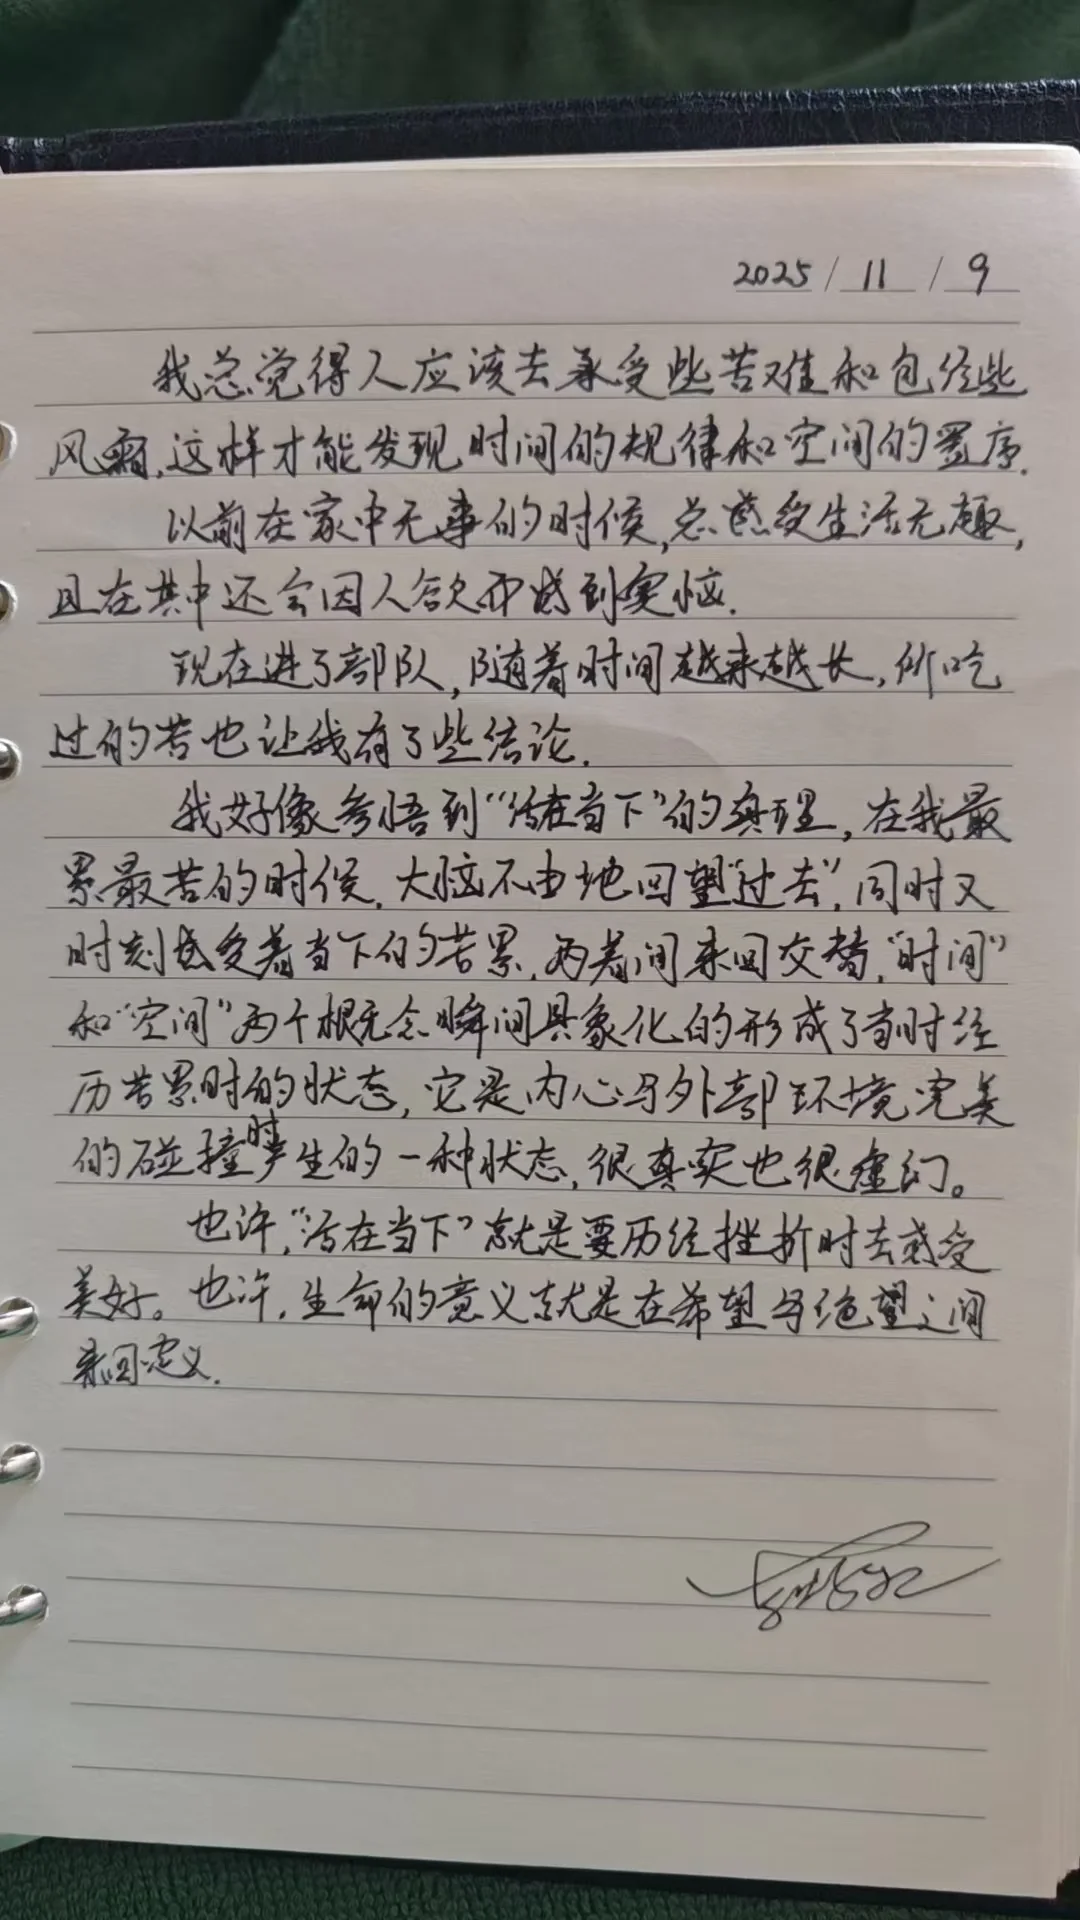 2025 / 11 / 9
我总觉得人应该去承受些苦难和包经些
风霜,这样才能发现时间的规律和空间的置序.
以前在家中无事的时候,总感受生活无趣,
且在其中还会因人欲而感到突恼.
现在进了部队,随着时间越来越长,所吃
过的苦也让我有了些结论.
我好像参悟到“活在当下”的真理,在我最
累最苦的时候,大脑不由地回望“过去”,同时又
时刻感受着当下的苦累,两者间来回交替,“时间”
和“空间”两个概念瞬间具象化的形成了当时经
历苦累时的状态,它是内心与外部环境完美
的碰撞时产生的一种状态,很真实也很虚幻。
也许,“活在当下”就是要历经挫折时去感受
美好。也许,生命的意义就是在希望与绝望之间
来回定义.